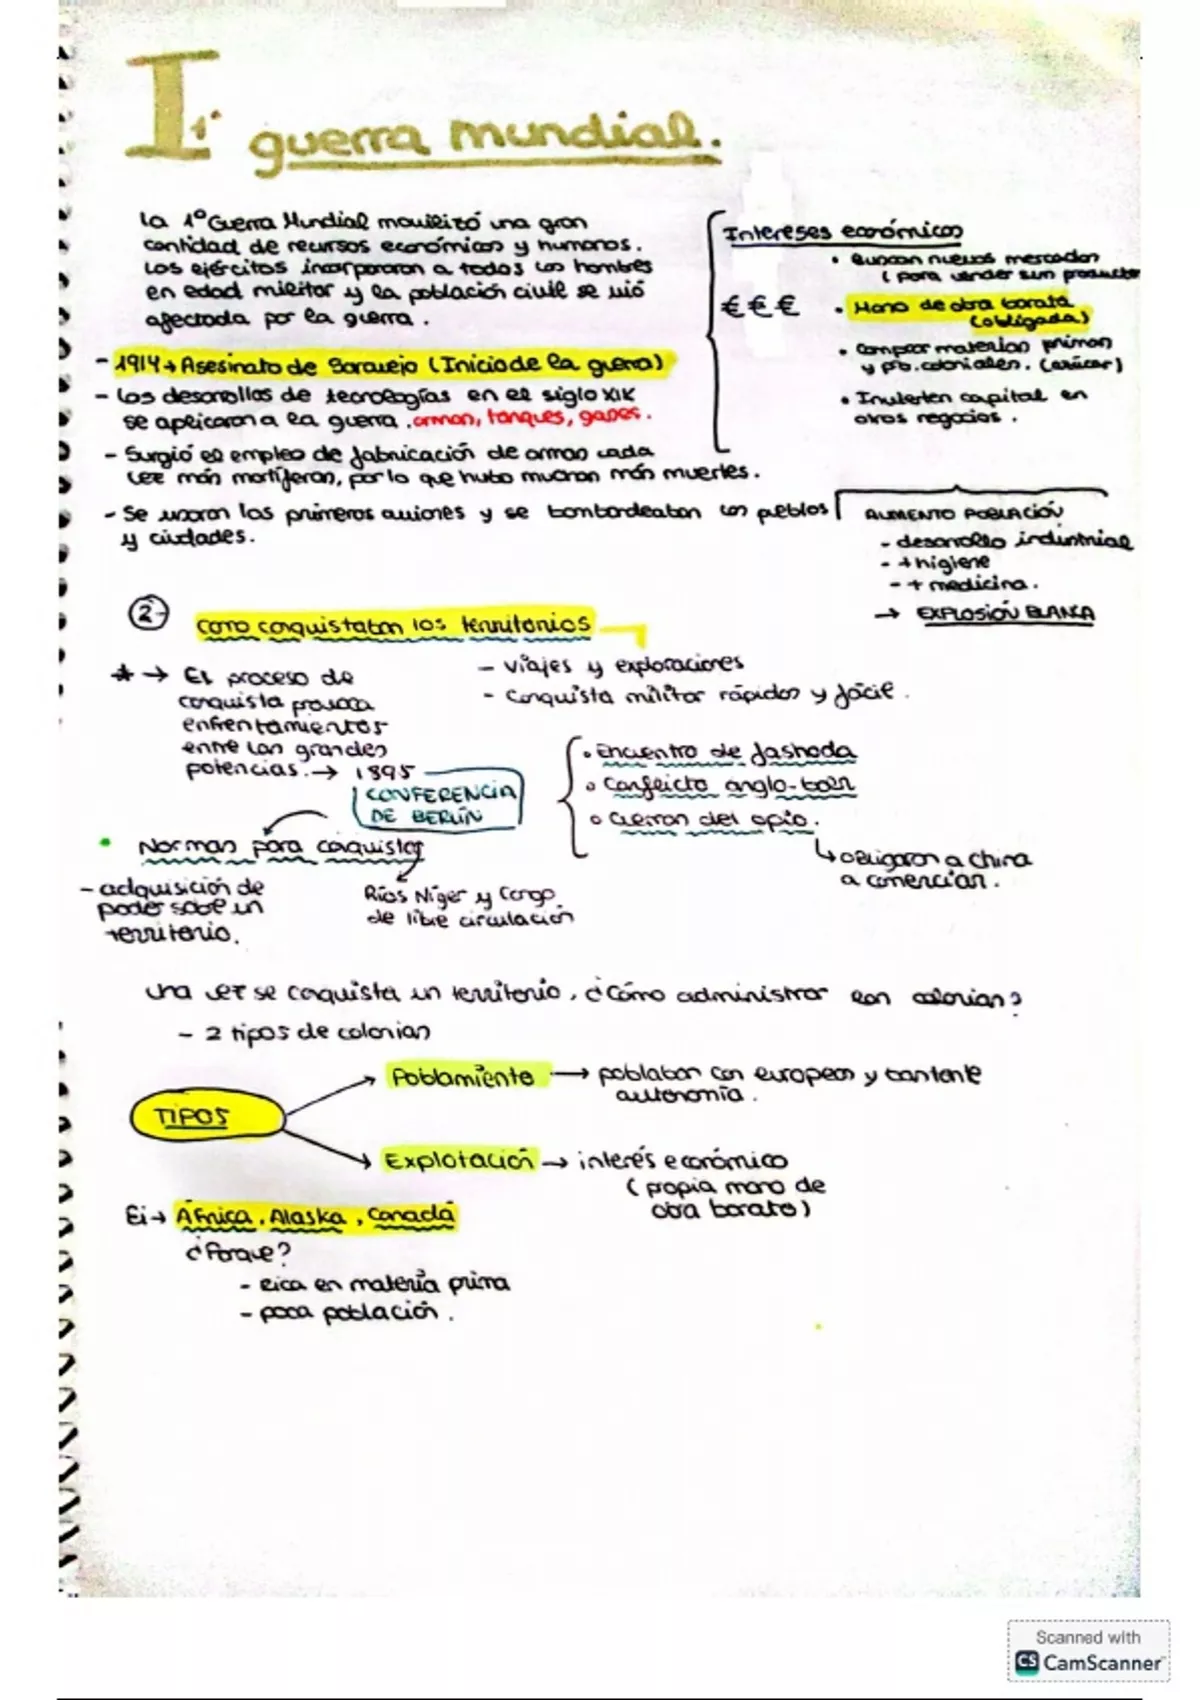 I 1ª guerra mundial.
La 1º Guerra Mundial movilizó una gran
cantidad de recursos económicos y humanos.
Los ejércitos incorporaron a todos los hombres
en edad militar y la población civil se vió
afectada por la guerra.
- 1914 → Asesinato de Saravejo (Inicio de la guerra)
- Los desarollos de tecnologías en el siglo XIX
se aplicaron a la guerra. armas, tanques, gases.
- Surgió el empleo de fabricación de armas cada
vez más mortíferas, por lo que hubo muchas más muertes.
- Se usaron los primeros aviones y se bombardeaban los pueblos
y ciudades.
Intereses económicos
€€€
• Buscan nuevos mercados
(para vender sus productos
• Mano de obra barata
(obligada)
• Comprar materias primas
y pb. coloniales. (azúcar)
• Invierten capital en
otros negocios.
AUMENTO POBLACIÓN
- desarrollo industrial
- + higiene
- + medicina.
→ EXPLOSIÓN BLANCA
2- como conquistaban los territorios
- viajes y exploraciones
- Conquista militar rápidos y fácil.
* → El proceso de
conquista provoca
enfrentamientos
entre las grandes
potencias. → 1895
CONFERENCIA
DE BERLÍN
• Encuentro de Fashoda
• Conflicto anglo-boer
• Guerras del opio.
↳ obligaron a China
a comerciar.
• Normas para conquistar
- adquisición de
poder sobre un
territorio.
Ríos Níger y Congo
de libre circulación
Una vez se conquista un territorio, ¿Cómo administrar las colonias?
- 2 tipos de colonias
TIPOS
Poblamiento → poblaban con europeos y bantante
autonomía.
Explotación → interés económico
(propia mano de
obra barata)
Ej → África, Alaska, Canadá
¿Porque?
- rica en materia prima
- poca población.
Scanned with
CS CamScanner